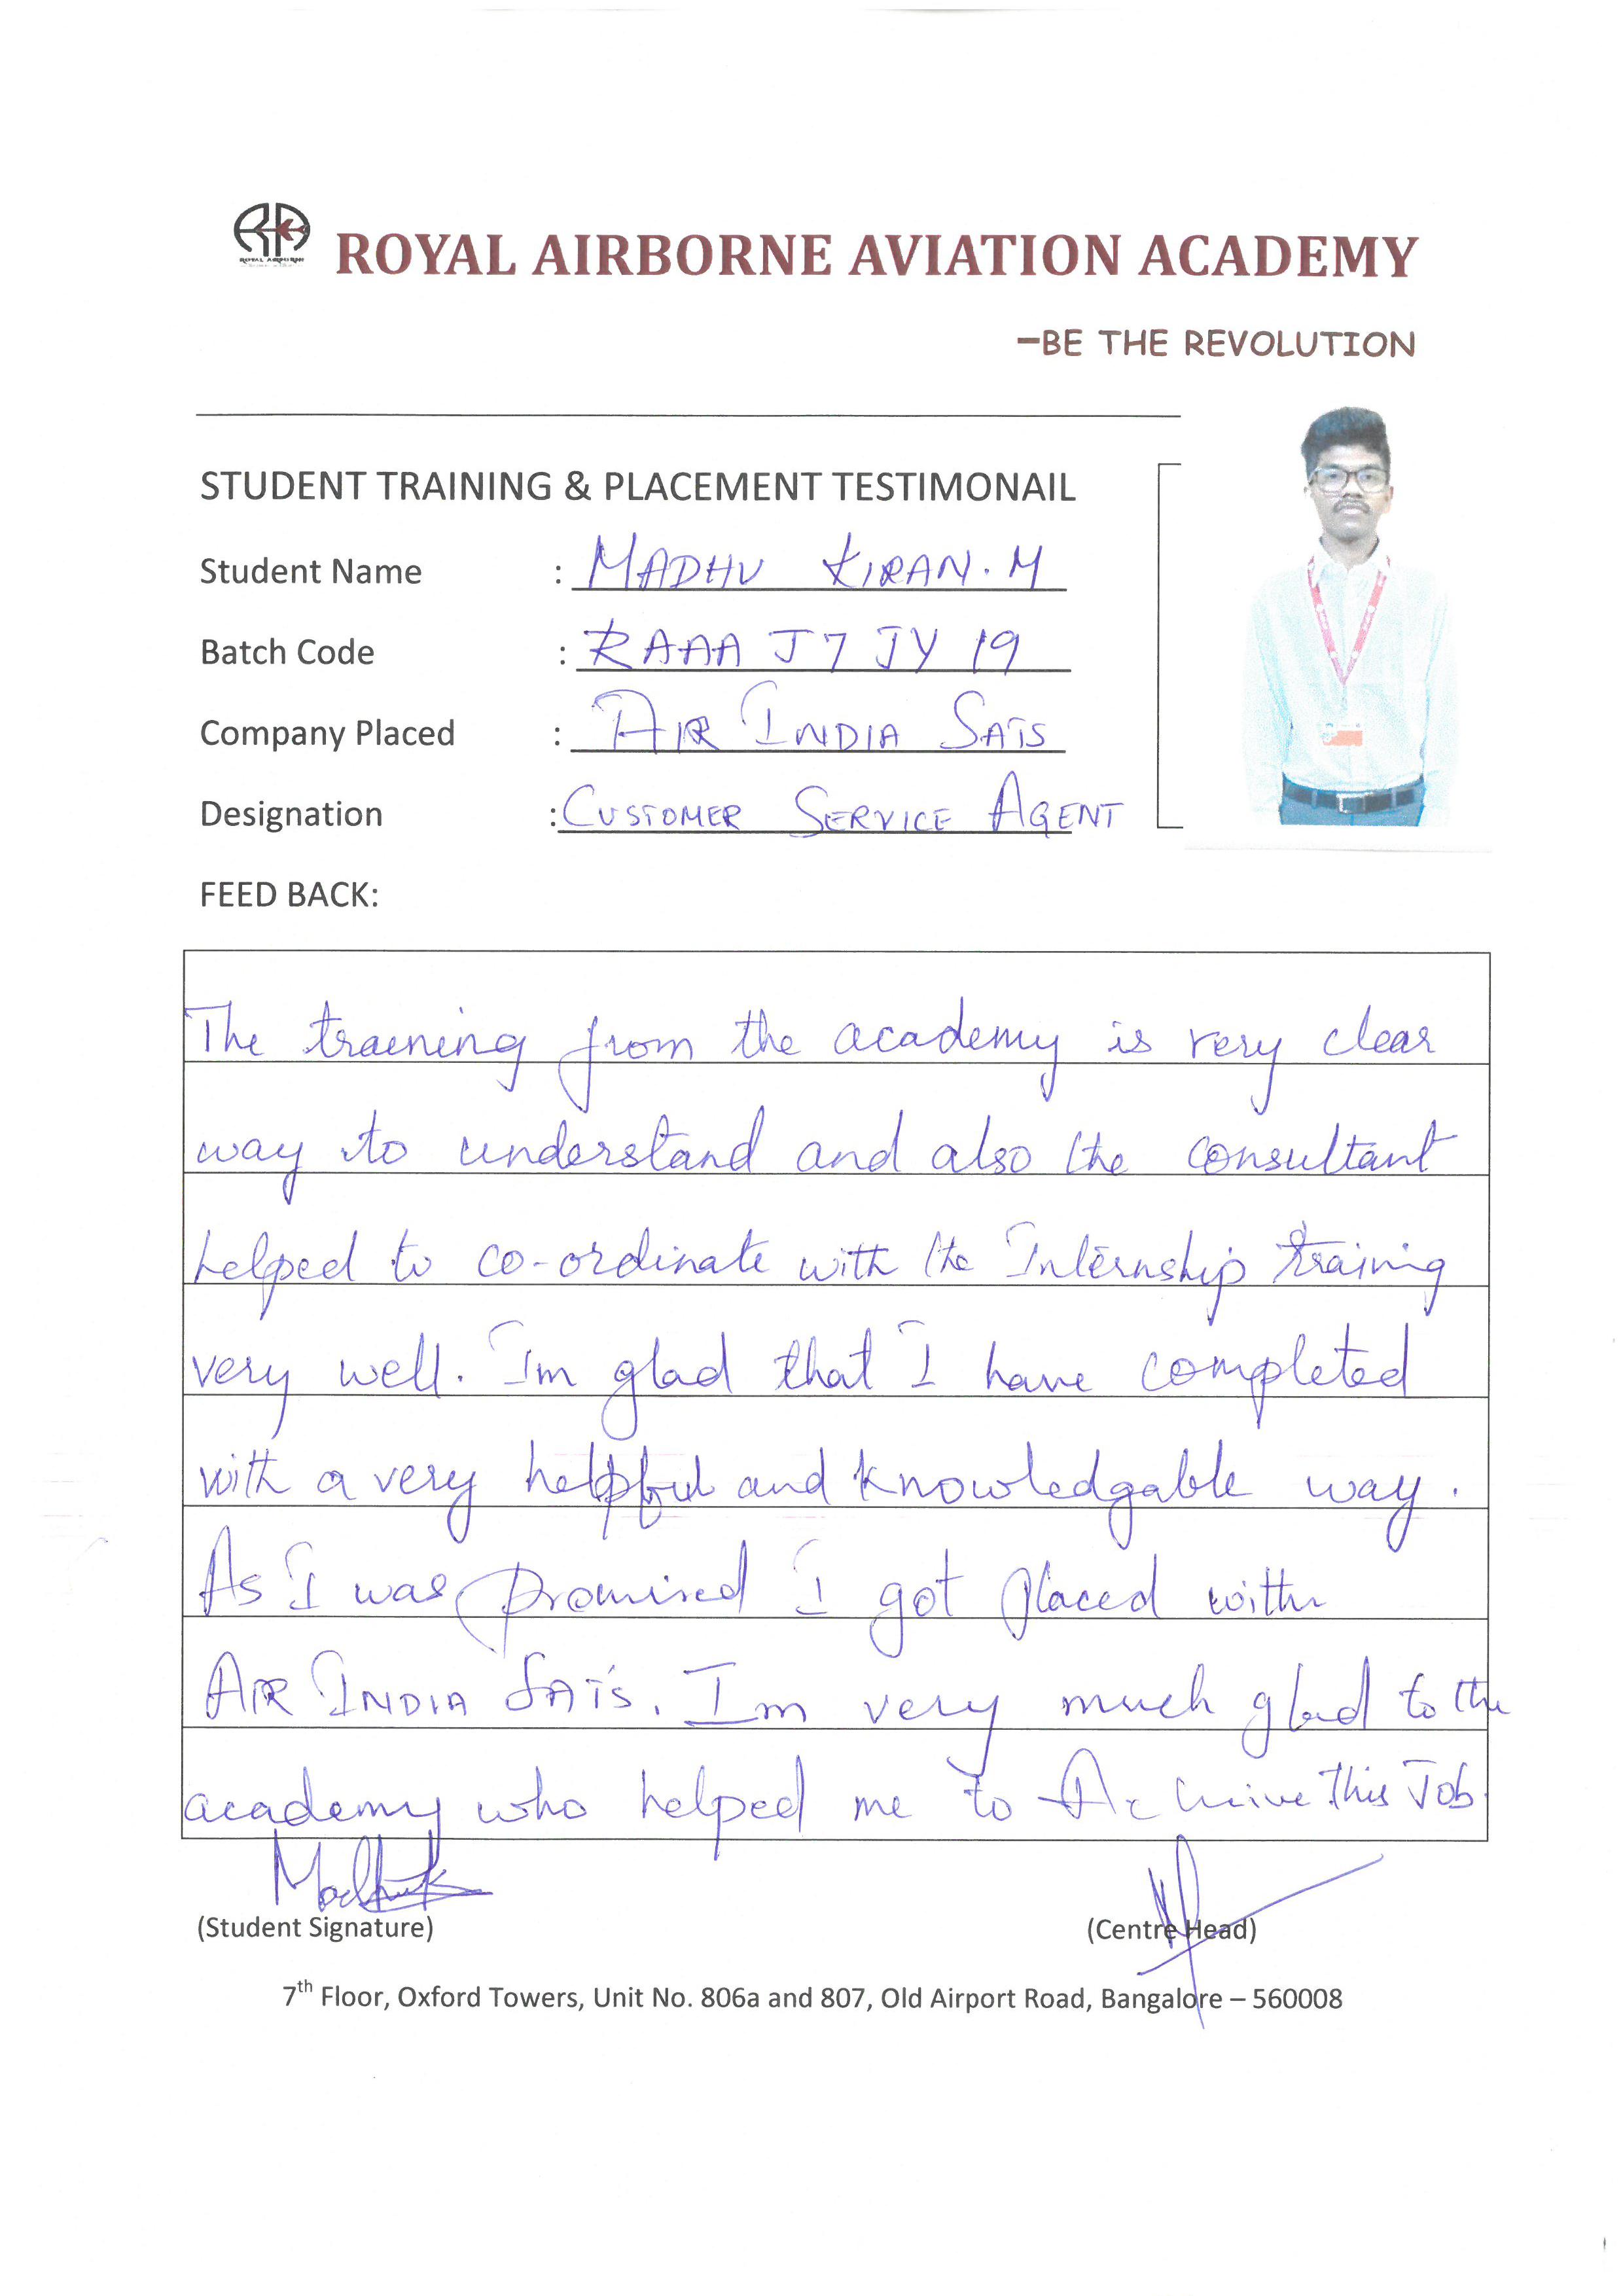 ROYAL AIRBORNE
ROYAL AIRBORNE AVIATION ACADEMY
–BE THE REVOLUTION
STUDENT TRAINING & PLACEMENT TESTIMONAIL
Student Name : MADHU KIRAN. M
Batch Code : RAAA J7 JY 19
Company Placed : AIR INDIA SATS
Designation : CUSTOMER SERVICE AGENT
FEED BACK:
The traening from the academy is very clear
way to understand and also the consultant
helped to co-ordinate with the Internship training
very well. Im glad that I have completed
with a very helpful and knowledgable way.
As I was promised I got placed with
AIR INDIA SATS. Im very much glad to the
academy who helped me to Acheive This Job.
(Student Signature) (Centre Head)
7th Floor, Oxford Towers, Unit No. 806a and 807, Old Airport Road, Bangalore – 560008